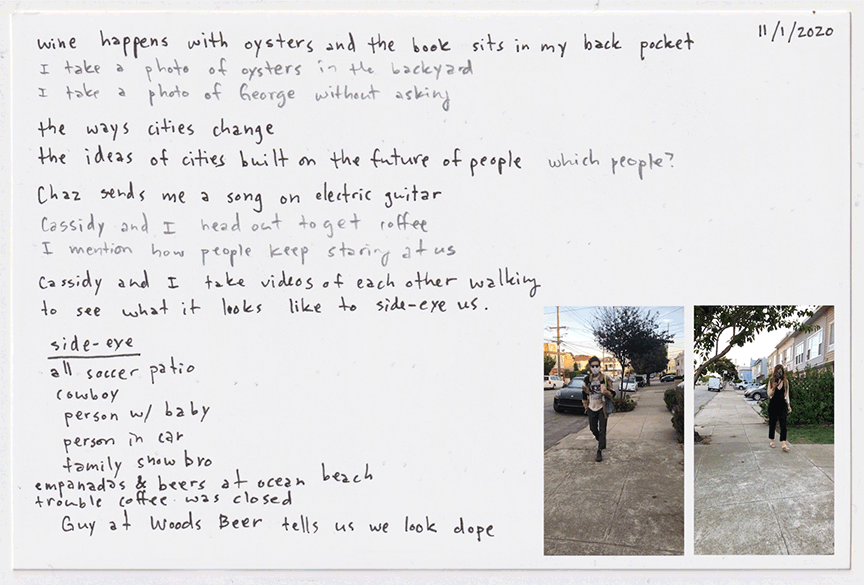 11/1/2020
wine happens with oysters and the book sits in my back pocket
I take a photo of oysters in the backyard
I take a photo of George without asking
the ways cities change
the ideas of cities built on the future of people which people?
Chaz sends me a song on electric guitar
Cassidy and I head out to get coffee
I mention how people keep staring at us
Cassidy and I take videos of each other walking
to see what it looks like to side-eye us.
side-eye
all soccer patio
cowboy
person w/ baby
person in car
family snow bro
empanadas & beers at ocean beach
trouble coffee was closed
Guy at Woods Beer tells us we look dope